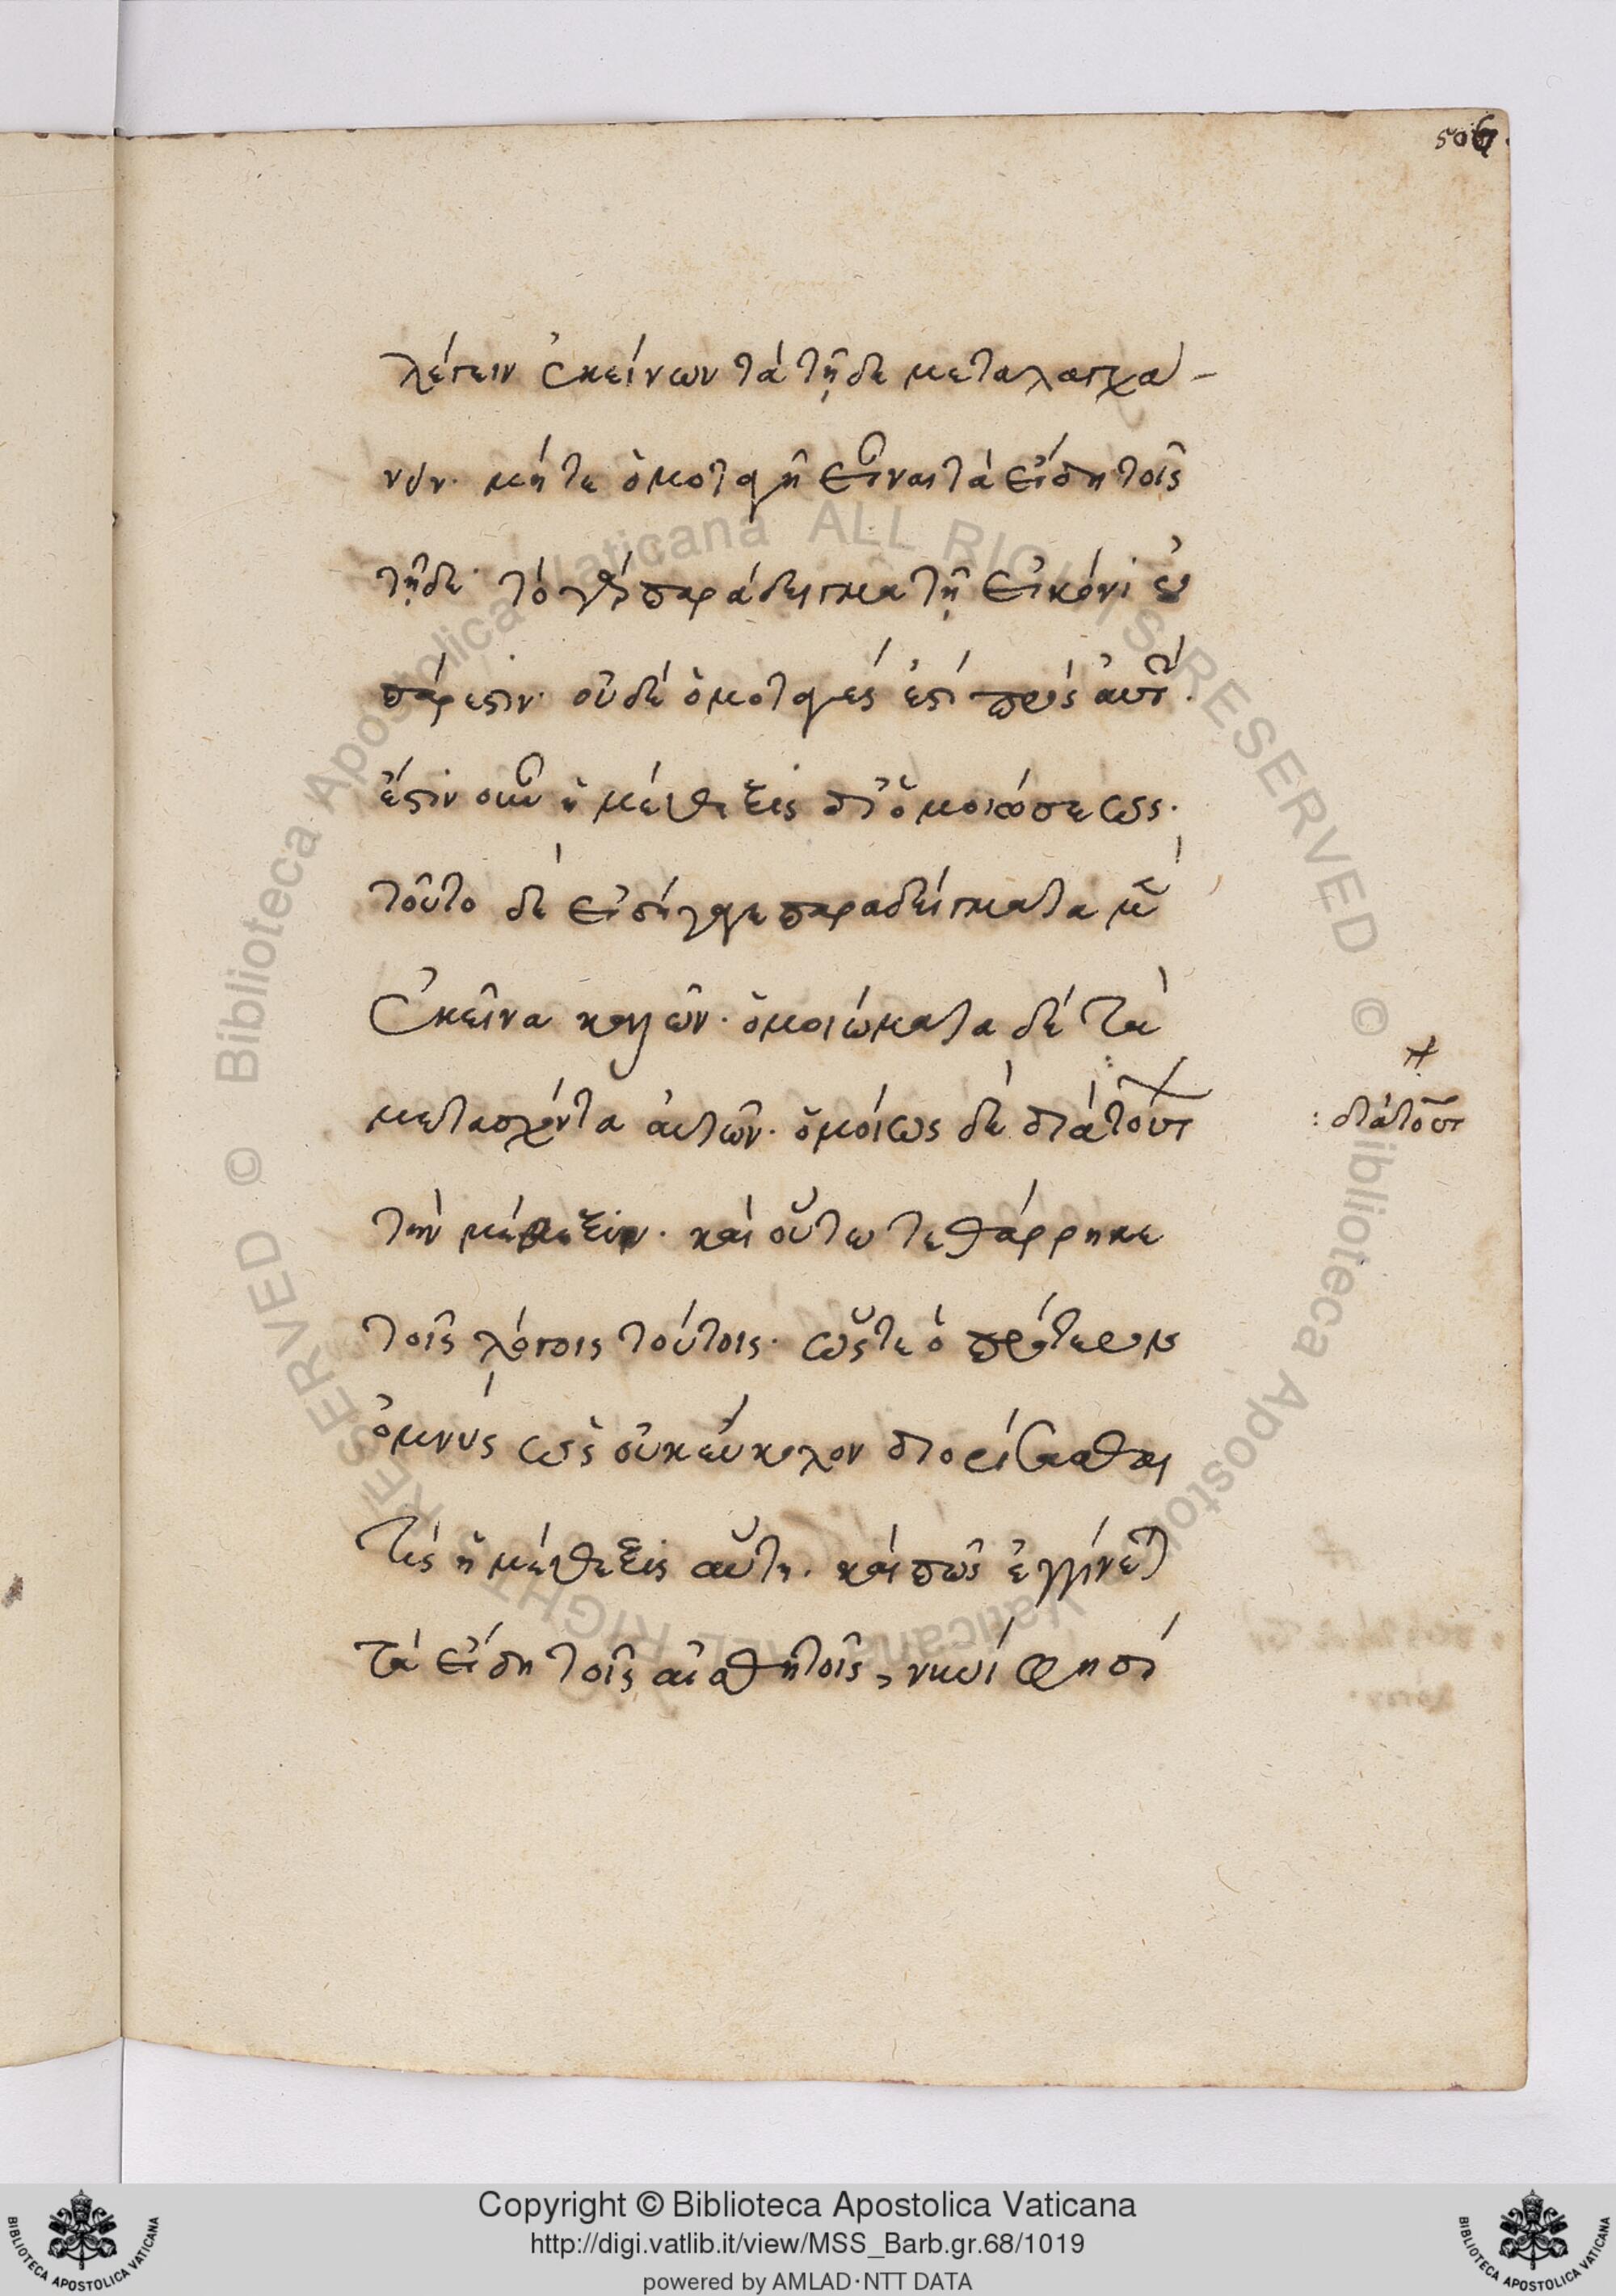 506.
λέγειν ἐκείνων τὰ τῇδε μεταλαγχά-
νειν. μήτε ὁμοταγῆ εἶναι τὰ εἴδη τοῖς
τῇδε. τὸ γὰρ παράδειγμα τῇ εἰκόνι οὐ
πάρεστιν. οὐδὲ ὁμοταγές ἐστι πρὸς αὐτήν.
ἔστιν οὖν ἡ μέθεξις δι' ὁμοιώσεως.
τοῦτο δὲ εἰσήγαγε παραδείγματα μὲν
ἐκεῖνα καλῶν. ὁμοιώματα δὲ τὰ
μετασχόντα αὐτῶν. ὁμοίως δὲ διὰ τοῦτο
: διὰ τοῦτο
τὴν μέθεξιν. καὶ οὕτω τεθάρρηκε
τοῖς λόγοις τούτοις. ὥστε ὁ πρότερον
ὀμνὺς ὡς οὐκ εὔκολον διορίσασθαι
τίς ἡ μέθεξις αὕτη. καὶ πῶς ἐγγίνεται
τὰ εἴδη τοῖς αἰσθητοῖς, νυνί φησι
Copyright © Biblioteca Apostolica Vaticana
http://digi.vatlib.it/view/MSS_Barb.gr.68/1019
powered by AMLAD·NTT DATA
BIBLIOTECA APOSTOLICA VATICANA
BIBLIOTECA APOSTOLICA VATICANA
© Biblioteca Apostolica Vaticana ALL RIGHTS RESERVED
© Biblioteca Apostolica Vaticana ALL RIGHTS RESERVED